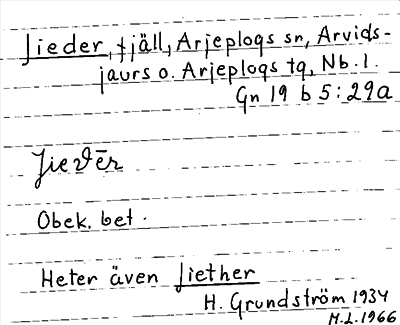 Jieder, fjäll, Arjeplogs sn, Arvids-
jaurs o. Arjeplogs tg, Nb. l.
Gn 19 b 5:29a
Jieϑēr
Obek. bet.
Heter även Jiether
H. Grundström 1934
M.L. 1966